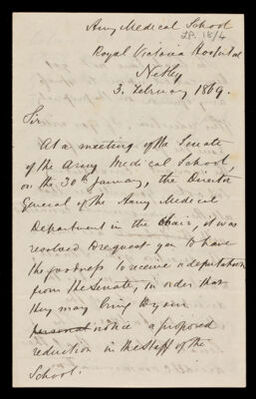 Army Medical School
LP. 18/4
Royal Victoria Hospital
Netley
3. February 1869.
Sir
At a meeting of the Senate
of the Army Medical School,
on the 30th January, the Director
General of the Army Medical
Department in the Chair, it was
resolved to request you to have
the goodness to receive a deputation
from the Senate, in order that
they may bring to your
personal notice a proposed
reduction in the Staff of the
School.